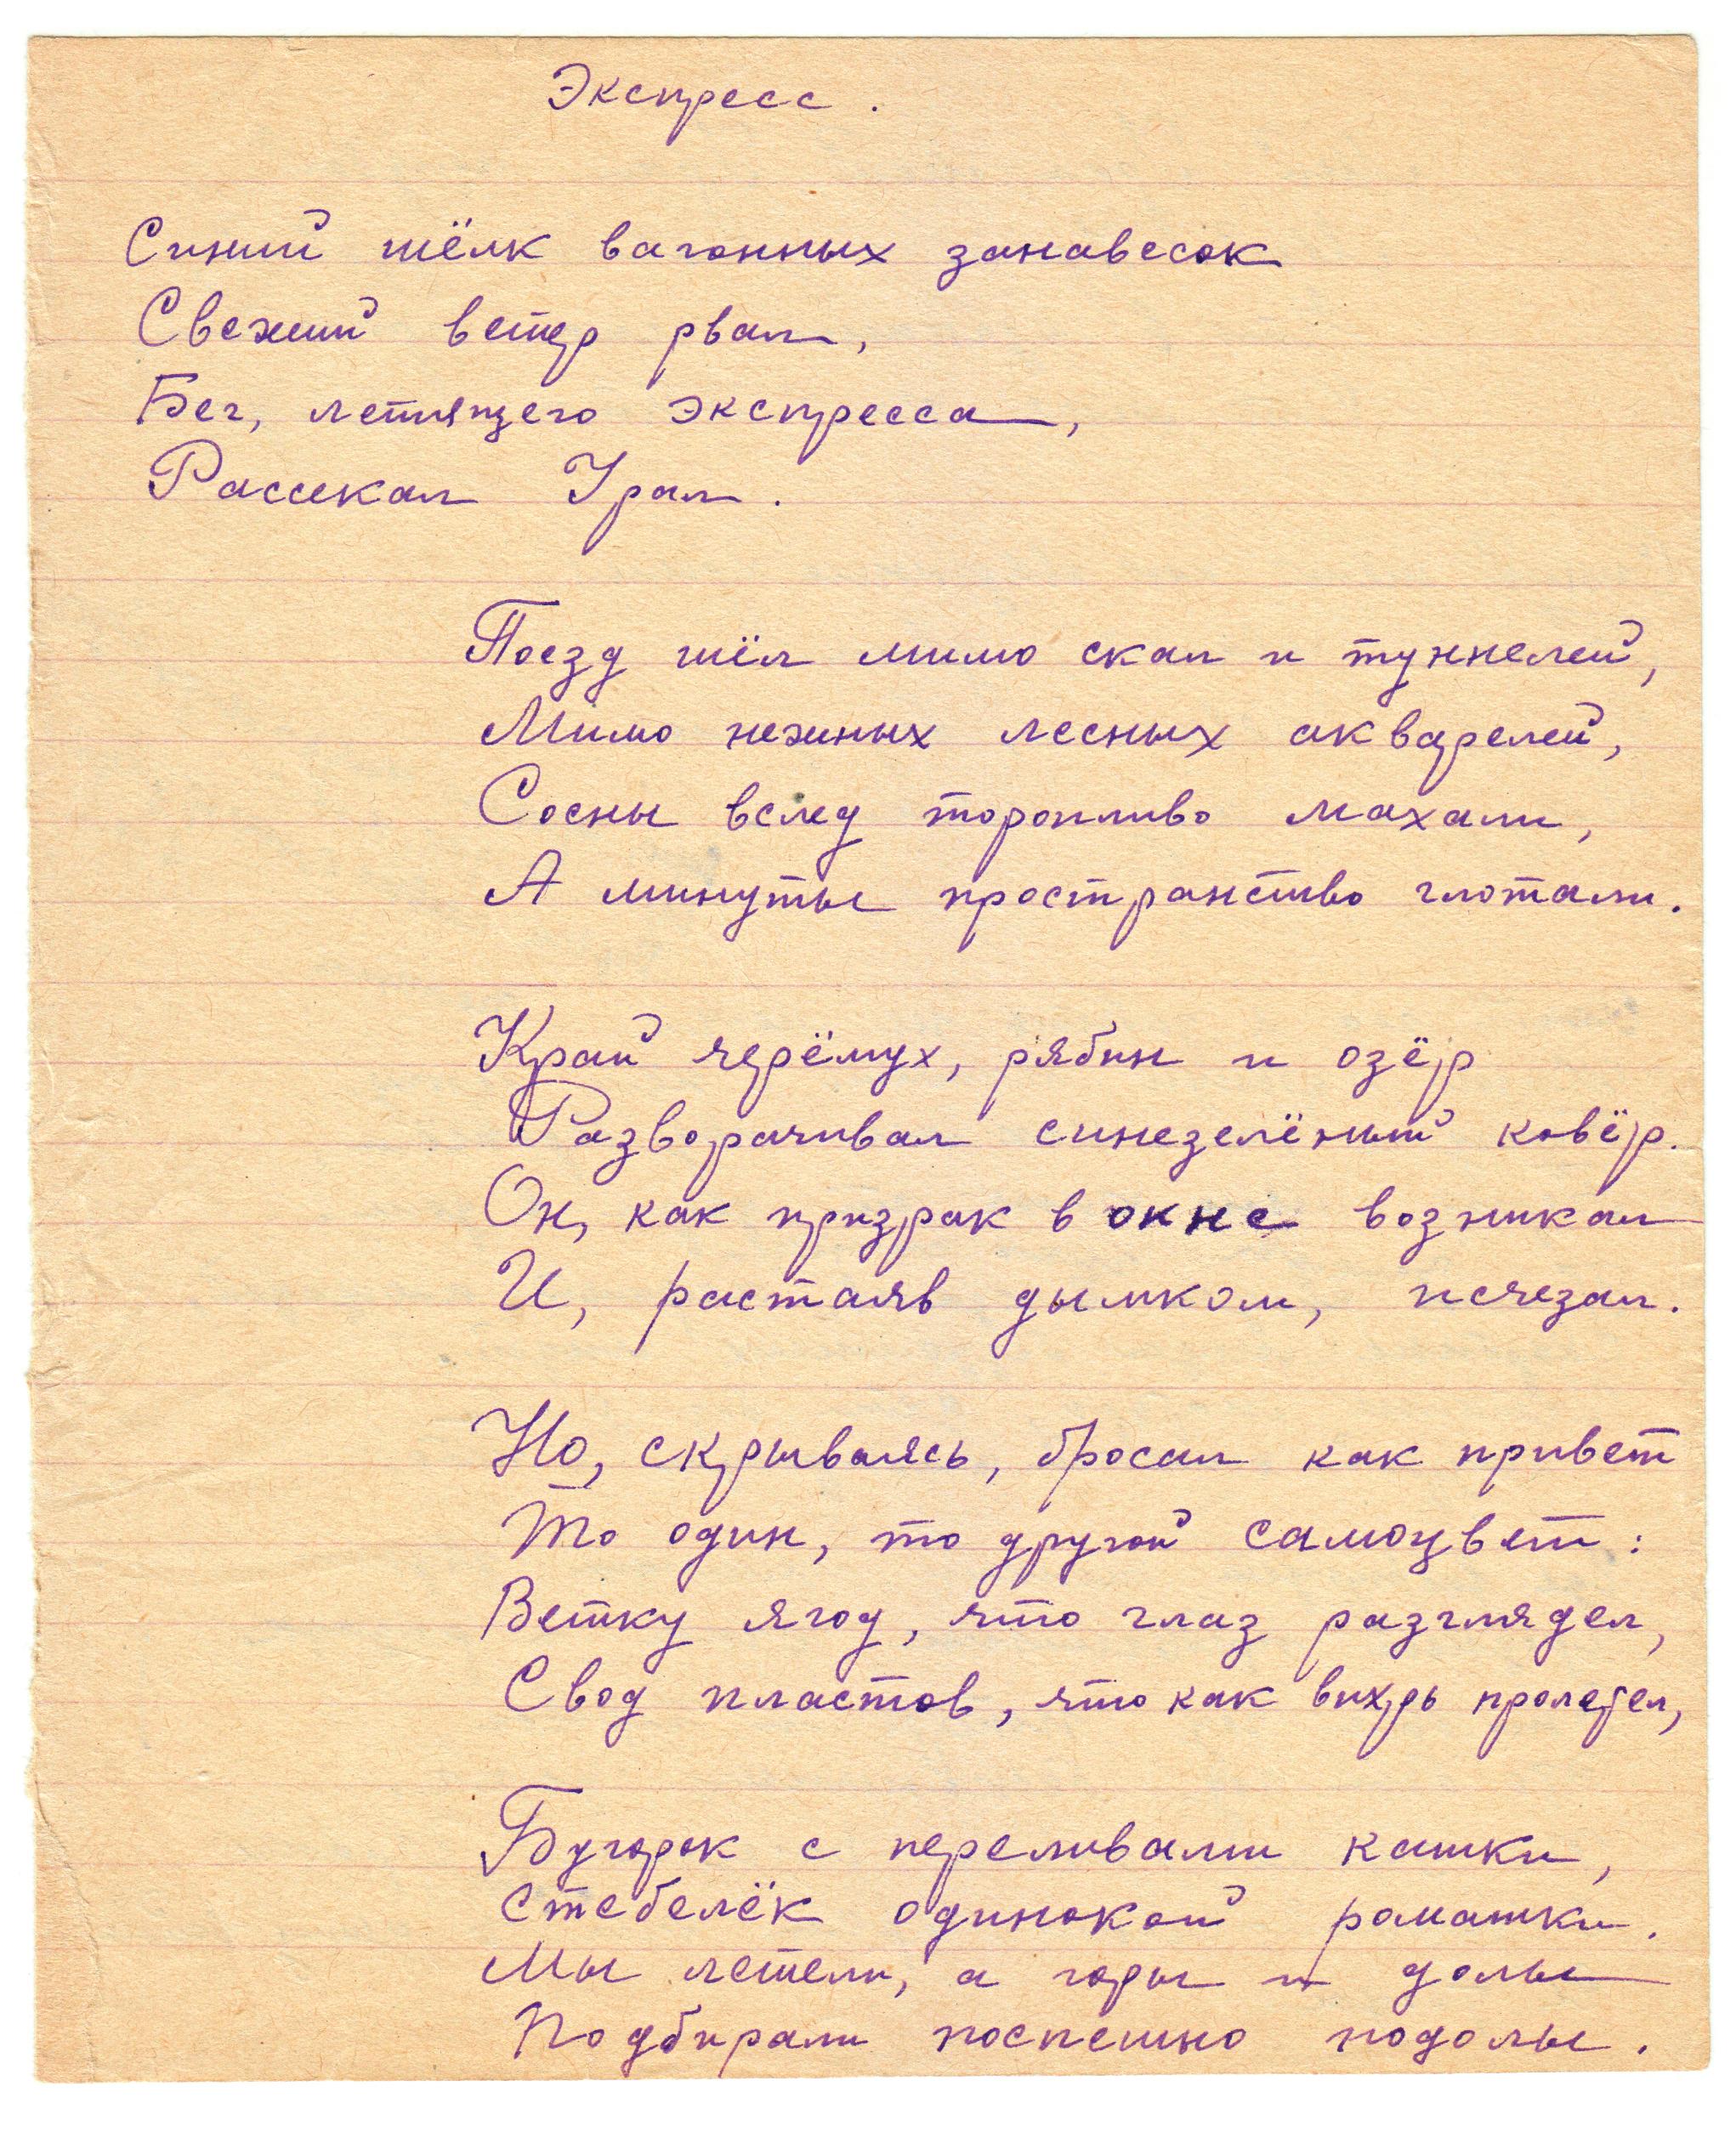 Экспресс.
Синий шёлк вагонных занавесок
Свежий ветер рвал,
Бег, летящего экспресса,
Рассекал Урал.
Поезд шёл мимо скал и туннелей,
Мимо нежных лесных акварелей,
Сосны вслед торопливо махали,
А минуты пространство глотали.
Край черёмух, рябин и озёр
Разворачивал синезелёный ковёр.
Он, как призрак в окне возникал
И, растаяв дымком, исчезал.
Но, скрываясь, бросал как привет
То один, то другой самоцвет:
Ветку ягод, что глаз разглядел,
Свод пластов, что как вихрь пролетел,
Бугорок с переливами кашки,
Стебелёк одинокой ромашки.
Мы летели, а горы и долы
Подбирали поспешно подолы.